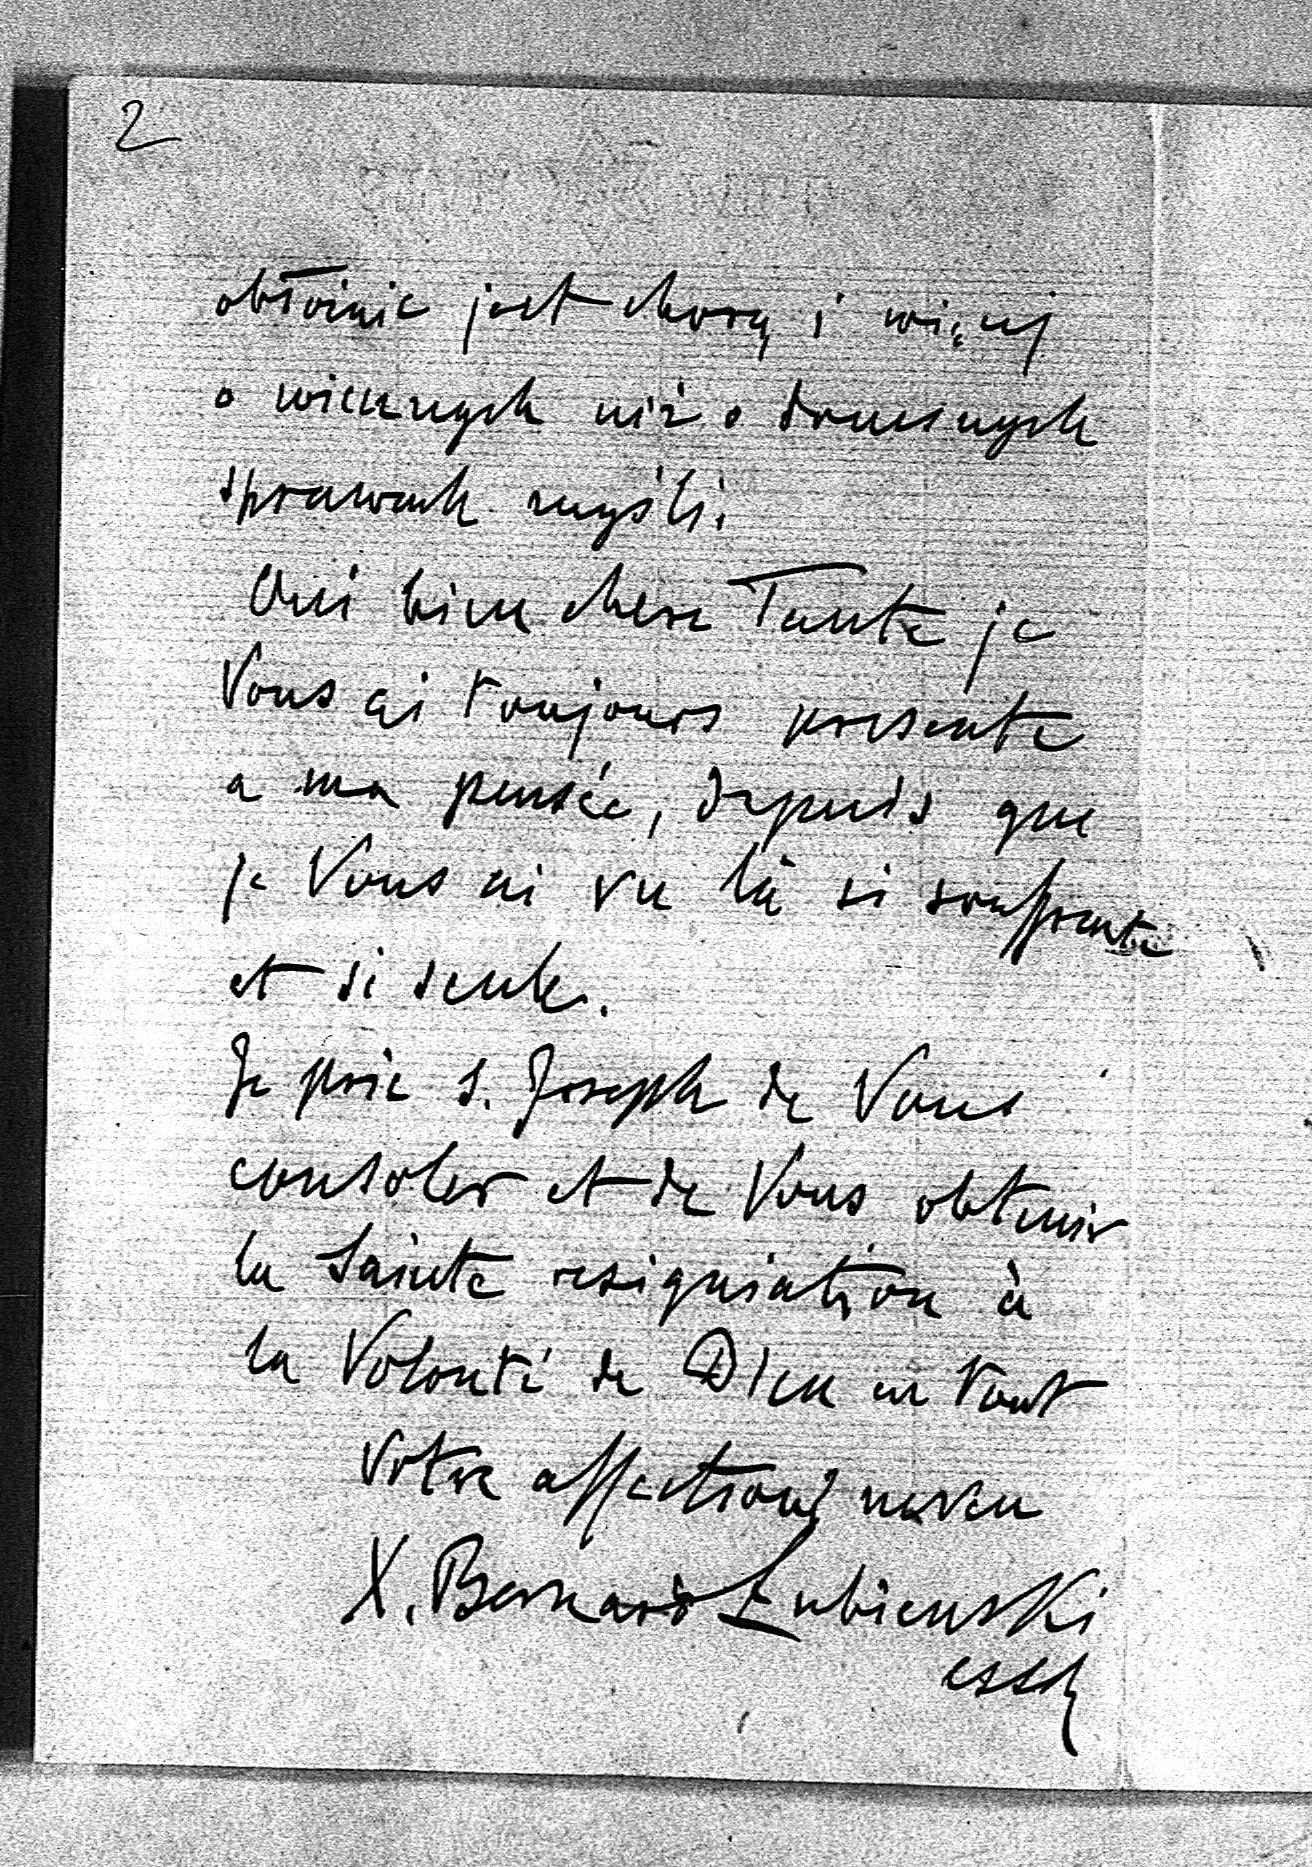 2
obłożnie jest chorą i więcej
o wiecznych niż o doczesnych
sprawach myśli.
Oui bien chere Tante je
Vous ai toujours presente
a ma pensée, depuis que
je Vous ai vu là si souffrante
et si seule.
Je prie S. Joseph de Vous
consoler et de Vous obtenir
la Sainte resigniation à
la Volonté de Dieu en tout
Votre affectioné neveu
X. Bernard Łubienski
CSSR